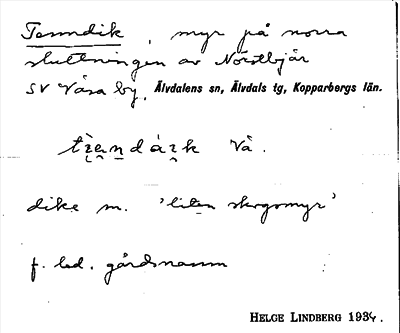 Tenndik, myr på norra
sluttningen av Nöstbjär
SV Våsa by. Älvdalens sn, Älvdals tg, Kopparbergs län.
Vå.
dike m. 'liten skogsmyr'
f. led. gårdsnamn
HELGE LINDBERG 1934.